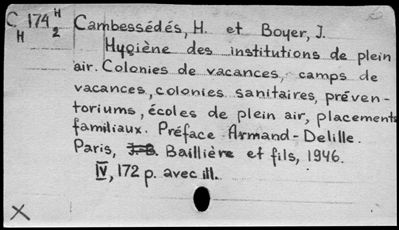 C 174 H
H 2
Cambessédés, H. et Boyer, J.
Hygiène des institutions de plein
air. Colonies de vacances, camps de
vacances, colonies sanitaires, préven-
toriums, écoles de plein air, placements
familiaux. Préface Armand-Delille.
Paris, J.-B. Baillière et fils, 1946.
IV, 172 p. avec ill.
X